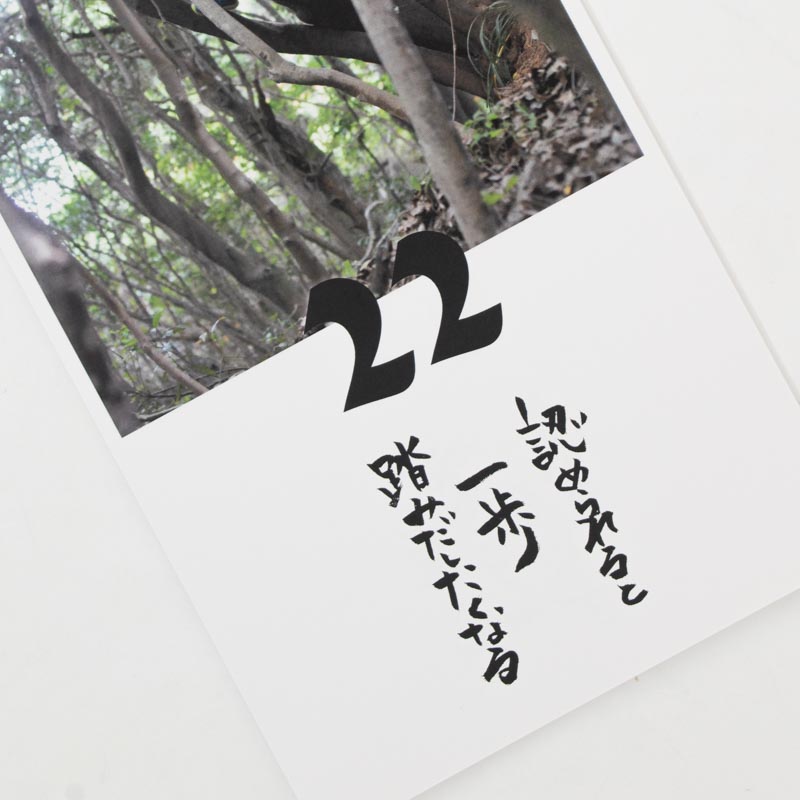 22
認められると
一歩
踏みだしたくなる